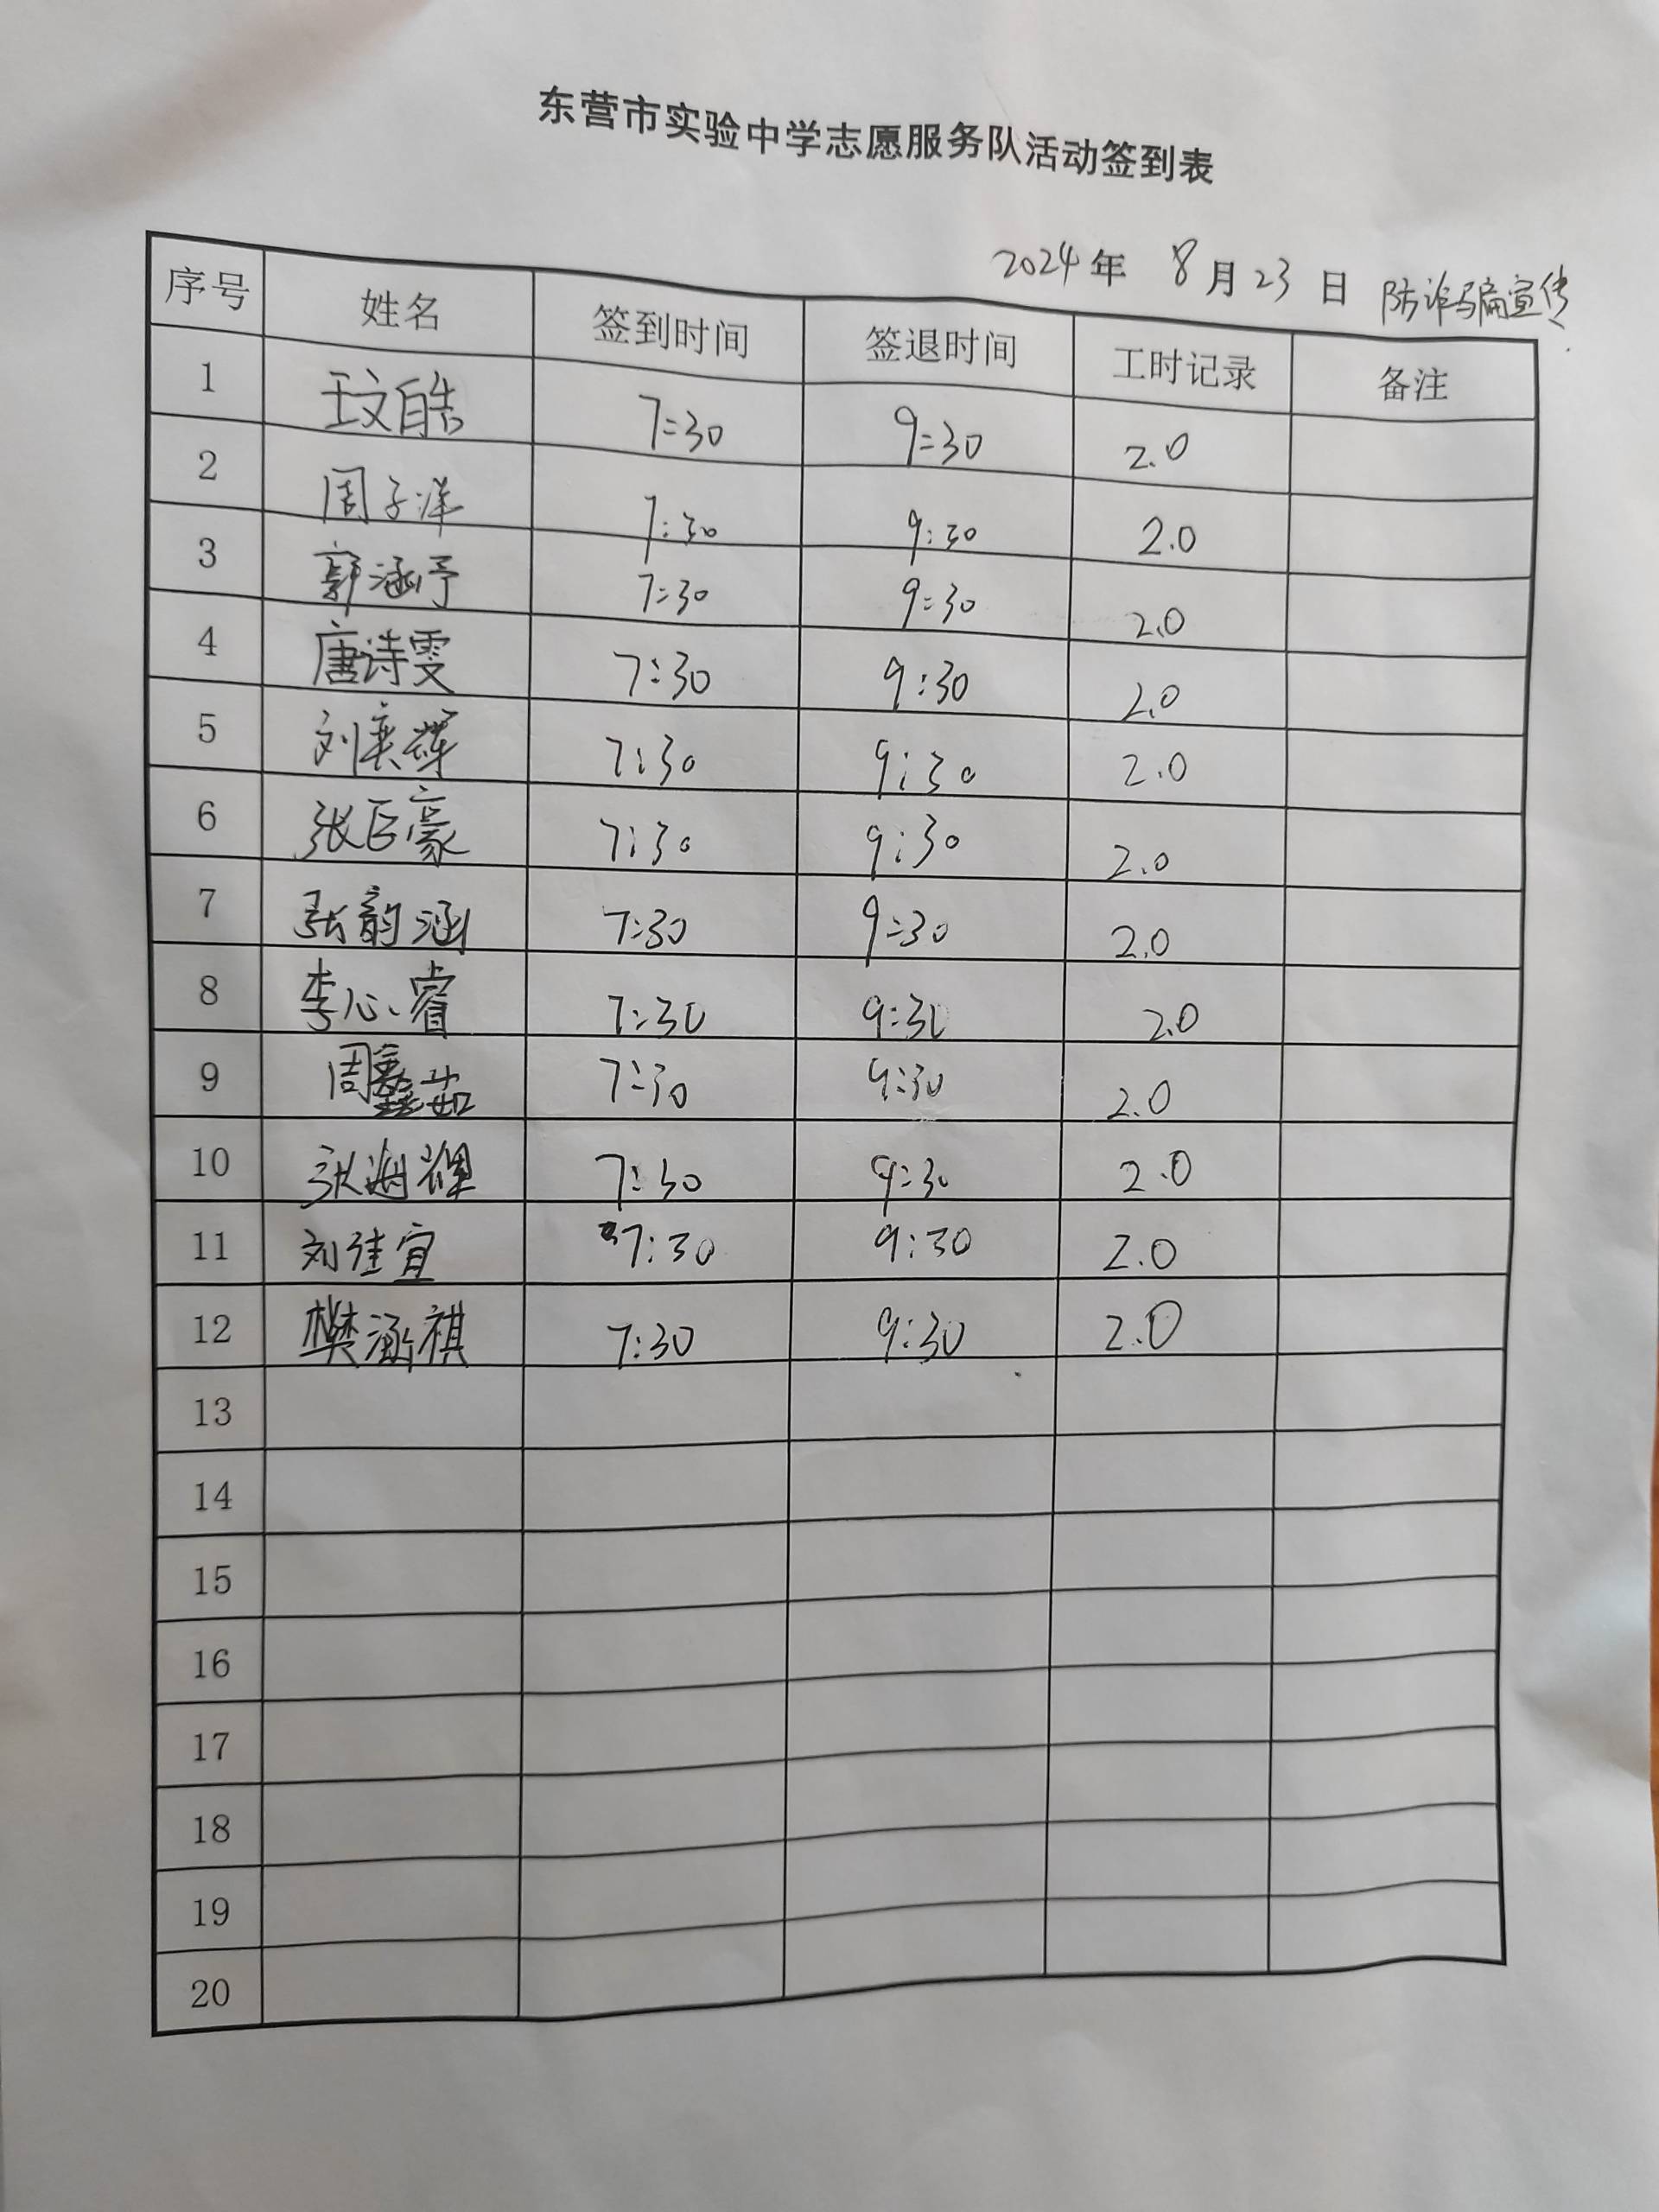 东营市实验中学志愿服务队活动签到表
2024年 8月23日 防诈骗宣传
序号 姓名 签到时间 签退时间 工时记录 备注
1 王文皓 7:30 9:30 2.0
2 周子洋 7:30 9:30 2.0
3 郭涵予 7:30 9:30 2.0
4 唐诗雯 7:30 9:30 2.0
5 刘奕辉 7:30 9:30 2.0
6 张巨豪 7:30 9:30 2.0
7 张韵涵 7:30 9:30 2.0
8 李心睿 7:30 9:30 2.0
9 周鑫茹 7:30 9:30 2.0
10 7:30 9:30 2.0
11 刘佳宜 7:30 9:30 2.0
12 樊涵祺 7:30 9:30 2.0
13
14
15
16
17
18
19
20